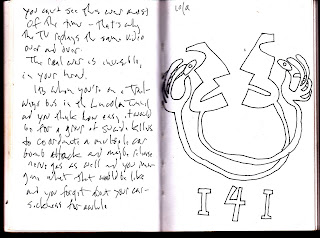 you can't see this war most
of the time – that's why
the TV replays the same video
over and over.
The real war is invisible,
in your head.
It's when you're on a Trail-
ways bus in the Lincoln Tunnel
and you think how easy it would
be for a group of suicide killers
to coordinate a multiple car
bomb attack and maybe release
nerve gas as well and you ima-
gine what that would be like
and you forget about your car-
sickness for awhile
I 4 I